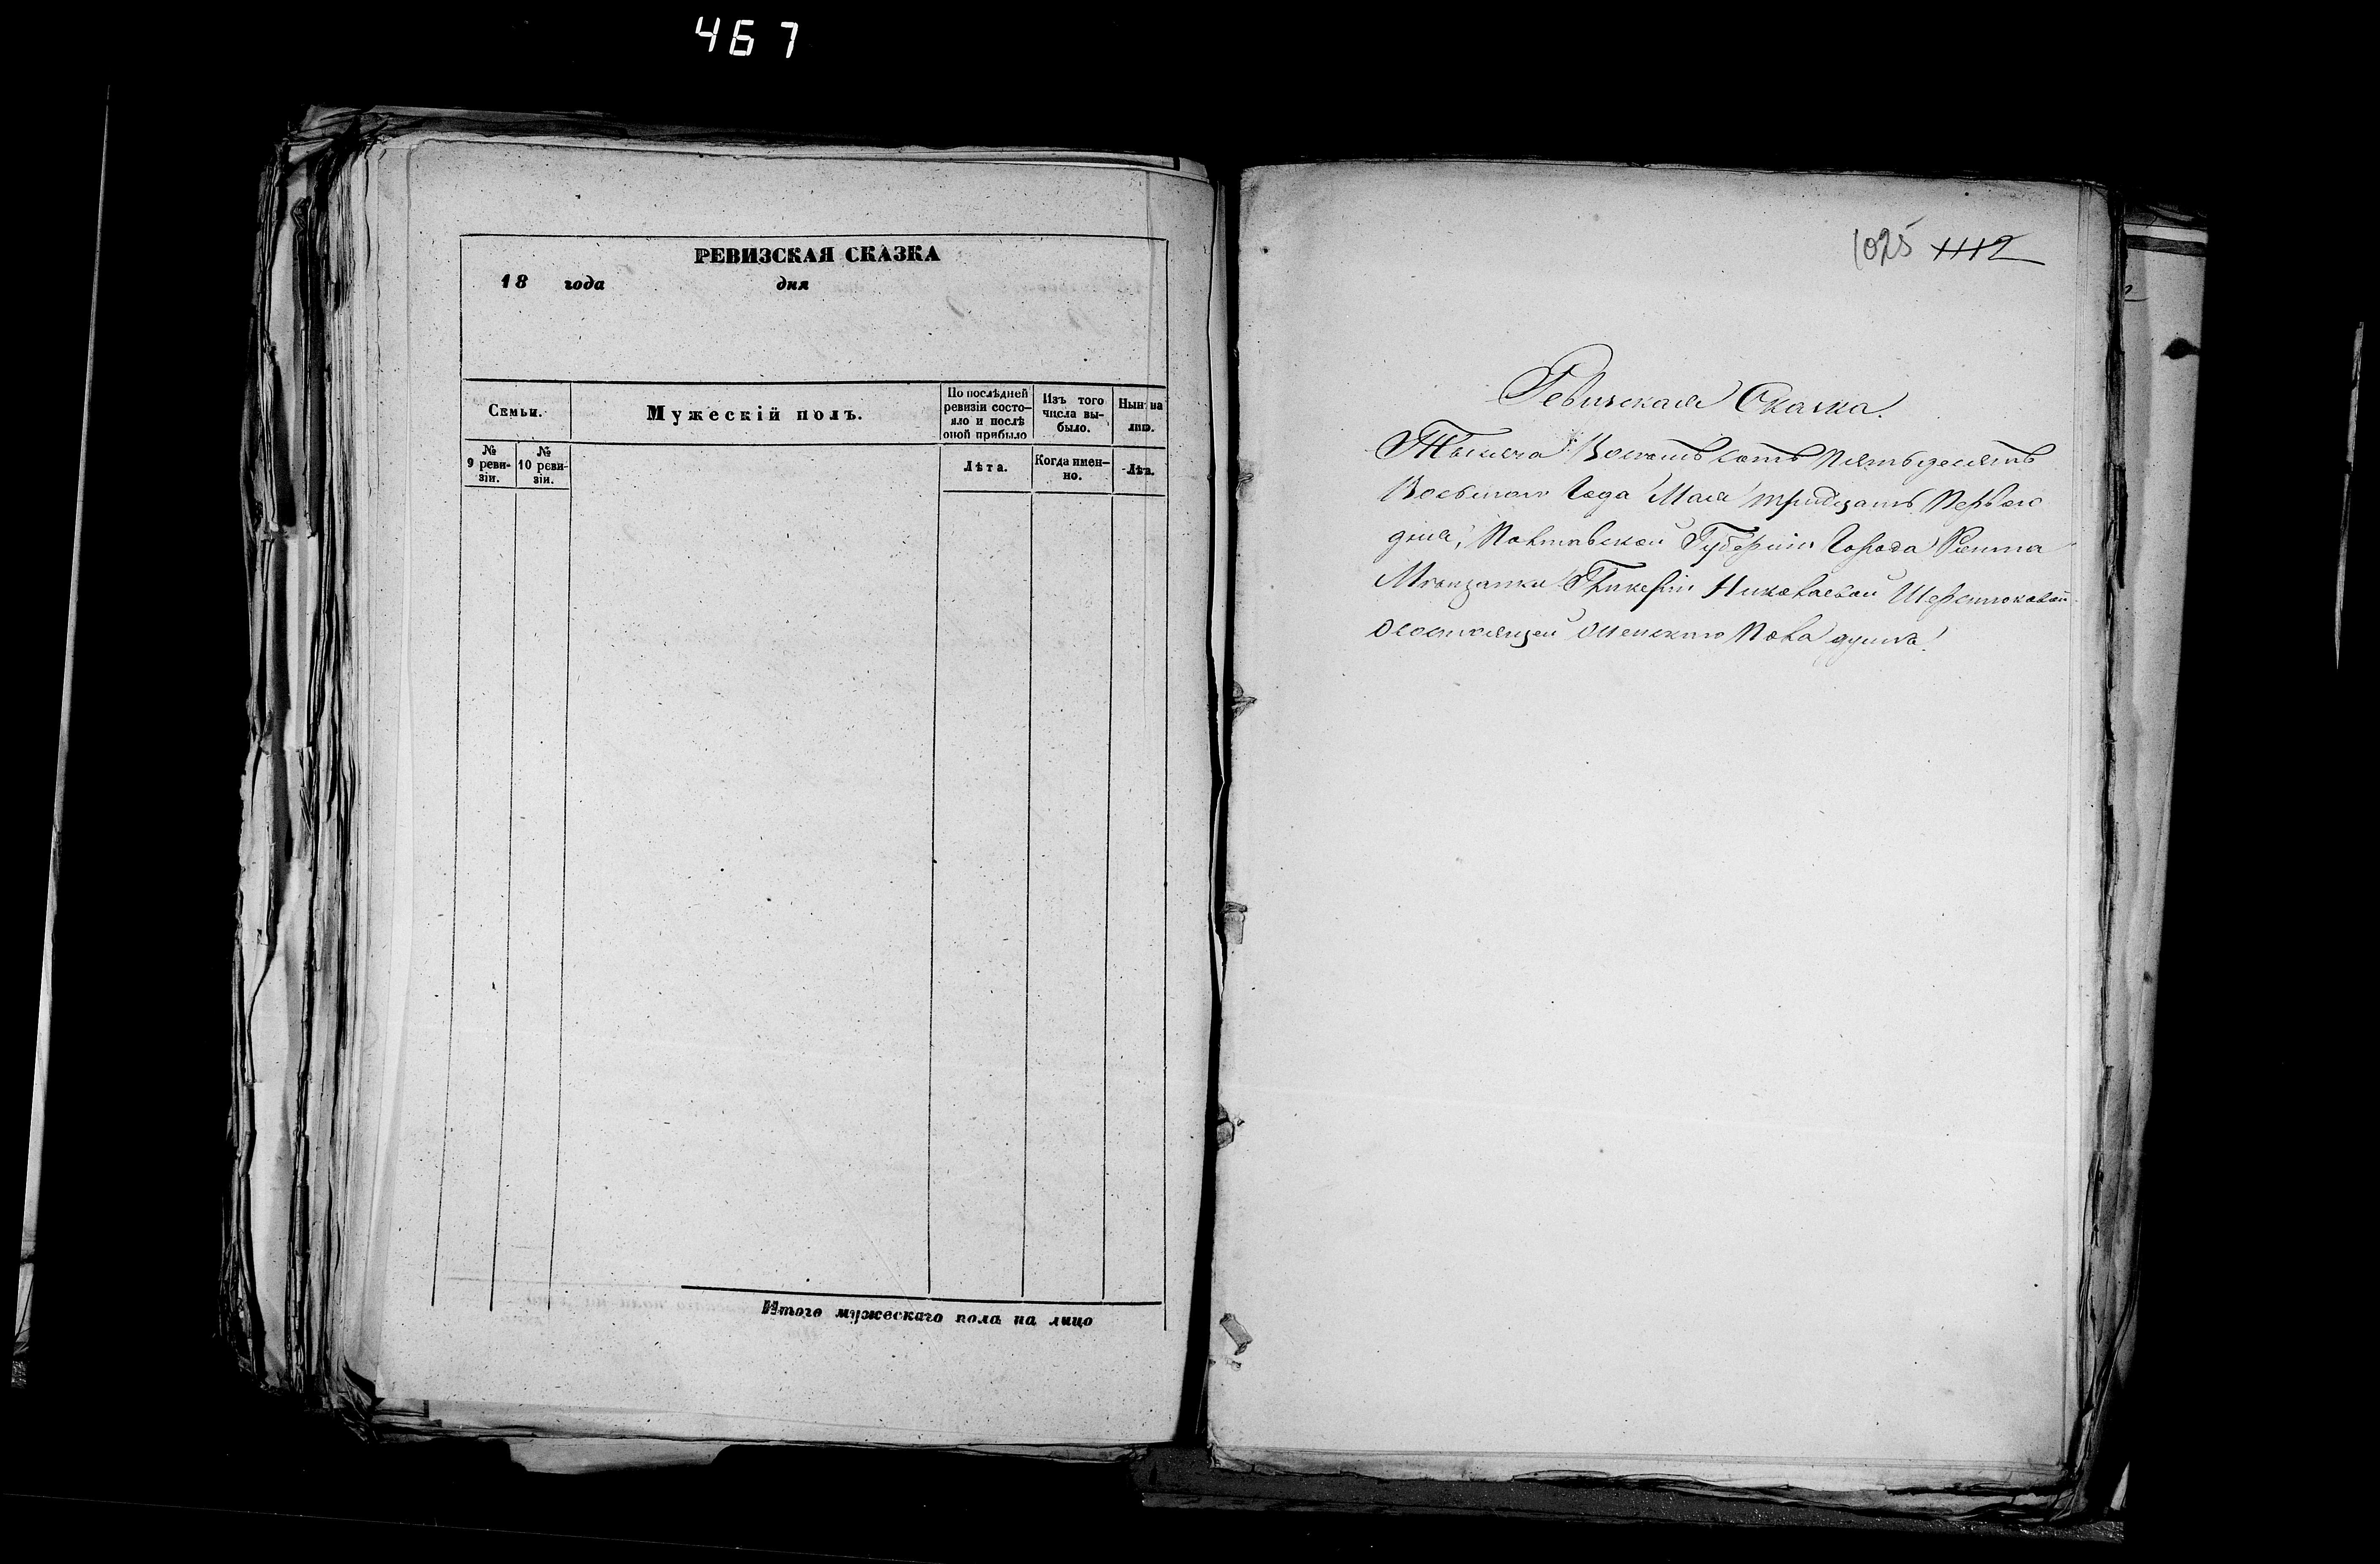 467
РЕВИЗСКАЯ СКАЗКА
18 года дня
Семьи.
Мужескій полъ.
По послѣдней
ревизіи состо-
яло и послѣ
оной прибыло
Изъ того
числа вы-
было.
Нынѣ на
лицо.
№
9 реви-
зіи.
№
10 реви-
зіи.
Лѣта.
Когда имен-
но.
Лѣта.
Итого мужескаго пола на лицо
1025 1112
Ревизская Сказка.
Тысяча Восемь сотъ Пятьдесятъ
Восьмого Года Мая тридцать Первого
дня, Полтавской Губерніи Города
Мещанки Гликеріи Николаевой Шерстюковой
О состоящей Женского Пола душъ.